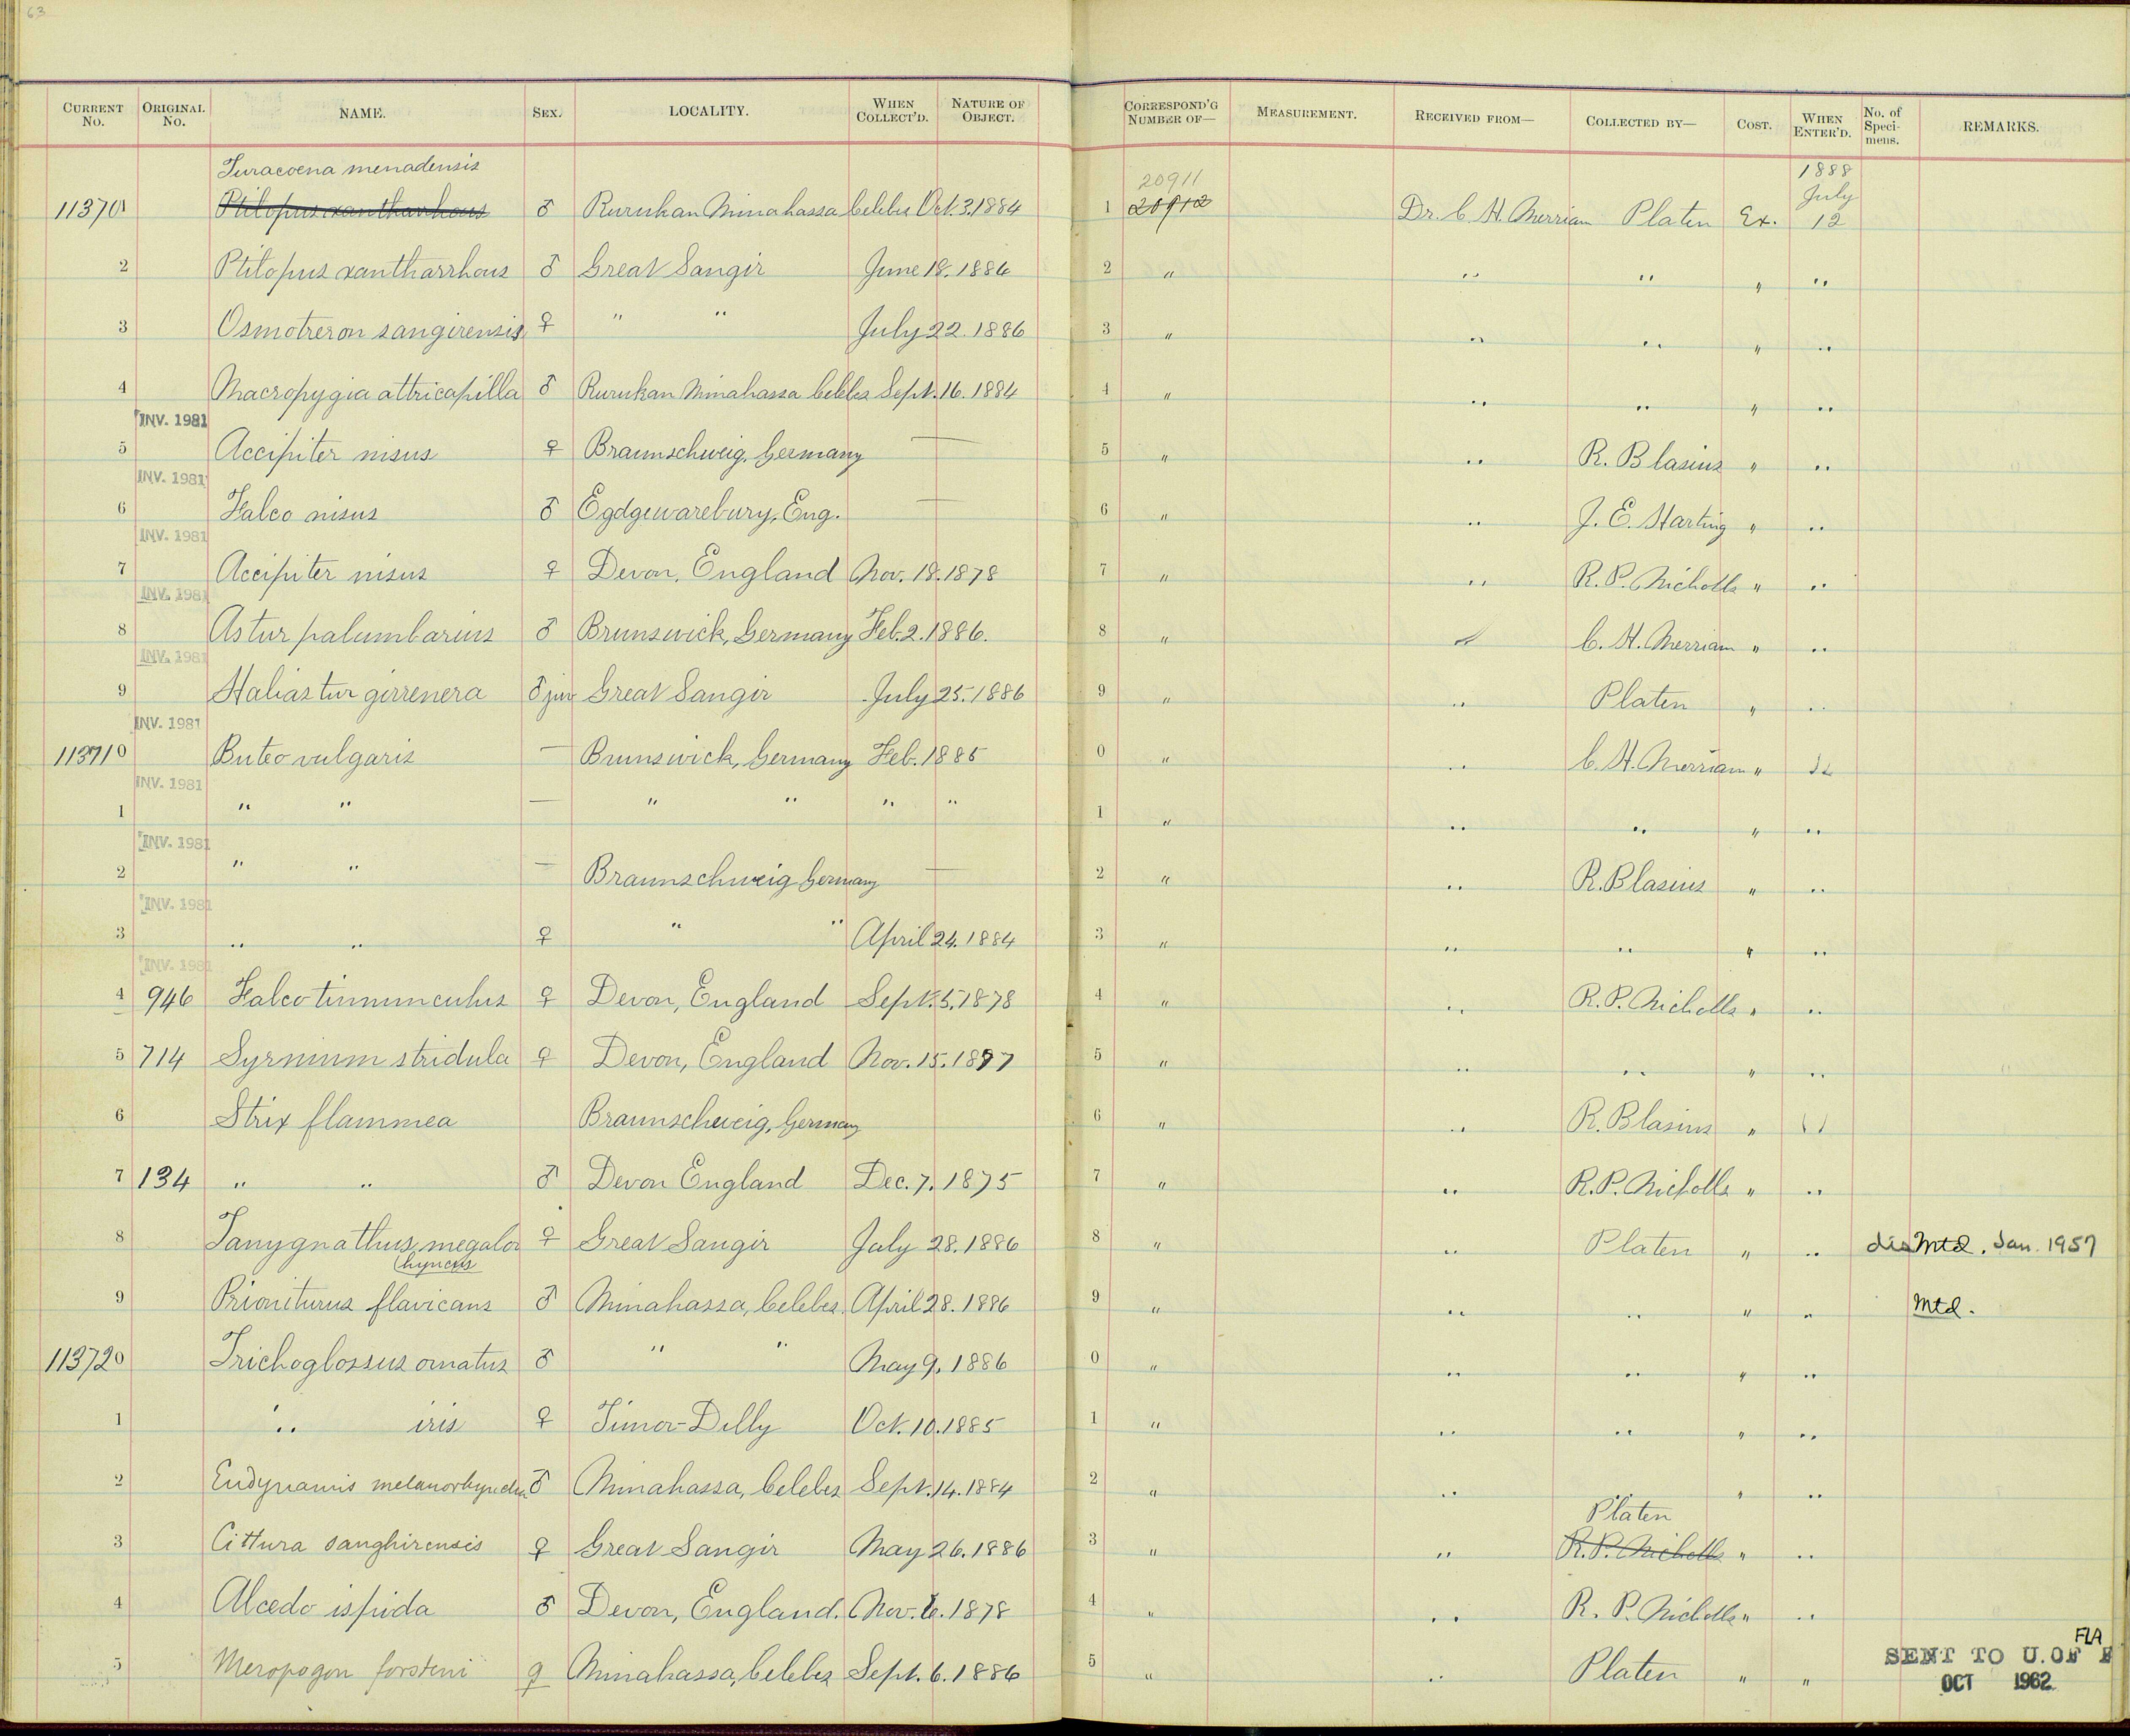 63
CURRENT No. ORIGINAL No. NAME. SEX. LOCALITY. WHEN COLLECT'D. NATURE OF OBJECT. CORRESPOND'G NUMBER OF— MEASUREMENT. RECEIVED FROM— COLLECTED BY— COST. WHEN ENTER'D. No. of Speci-mens. REMARKS.
Turacoena menadensis 20911 1888 July
113701 Ptilopus xantharrhous ♂ Rurukan Minahassa Celebes Oct. 3. 1884 1 20912 Dr. C. H. Merriam Platen Ex. 12
2 Ptilopus xantharrhous ♂ Great Sangir June 18. 1886 2 " " " " "
3 Osmotreron sangirensis ♀ " " July 22. 1886 3 " " " " "
4 Macropygia attricapilla ♂ Rurukan Minahassa Celebes Sept. 16. 1884 4 " " " " "
INV. 1981
5 Accipiter nisus ♀ Braunschweig, Germany — 5 " " R. Blasius " "
INV. 1981
6 Falco nisus ♂ Egdgewarebury, Eng. — 6 " " J. E. Harting " "
INV. 1981
7 Accipiter nisus ♀ Devon, England Nov. 18. 1878 7 " " R. P. Nicholls " "
INV. 1981
8 Astur palumbarius ♂ Brunswick, Germany Feb. 2. 1886. 8 " " C. H. Merriam " "
INV. 1981
9 Haliastur girrenera ♂ juv Great Sangir July 25. 1886 9 " " Platen " "
INV. 1981
113710 Buteo vulgaris — Brunswick, Germany Feb. 1885 0 " " C. H. Merriam " "
INV. 1981
1 " " — " " " " 1 " " " " "
INV. 1981
2 " " — Braunschweig Germany — 2 " " R. Blasius " "
INV. 1981
3 " " ♀ " " April 24. 1884 3 " " " " "
INV. 1981
4 946 Falco tinnunculus ♀ Devon, England Sept. 5. 1878 4 " " R. P. Nicholls " "
5 714 Syrnium stridula ♀ Devon, England Nov. 15. 1877 5 " " " " "
6 Strix flammea Braunschweig, Germany 6 " " R. Blasius " "
7 134 " " ♂ Devon England Dec. 7. 1875 7 " " R. P. Nicholls " "
8 Tanygnathus megalor ♀ Great Sangir July 28. 1886 8 " " Platen " " dis Mtd. Jan. 1957
hyncus
9 Prioniturus flavicans ♂ Minahassa, Celebes. April 28. 1886 9 " " " " " Mtd.
113720 Trichoglossus ornatus ♂ " " May 9, 1886 0 " " " " "
1 " iris ♀ Timor-Dilly Oct. 10. 1885 1 " " " " "
2 Eudynamis melanorhyncha ♂ Minahassa, Celebes Sept. 14. 1884 2 " " " " "
Platen
3 Cittura sanghirensis ♀ Great Sangir May 26. 1886 3 " " R. P. Nicholls " "
4 Alcedo ispida ♂ Devon, England. Nov. 6. 1878 4 " " R. P. Nicholls " "
FLA
5 Meropogon forsteni ♀ Minahassa, Celebes Sept. 6. 1886 5 " " Platen " " SENT TO U. OF F
OCT 1962